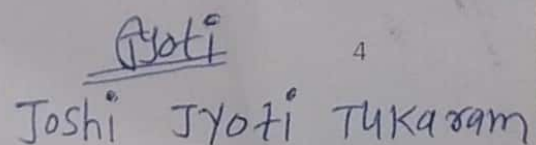 Jyoti
4
Joshi Jyoti Tukaram